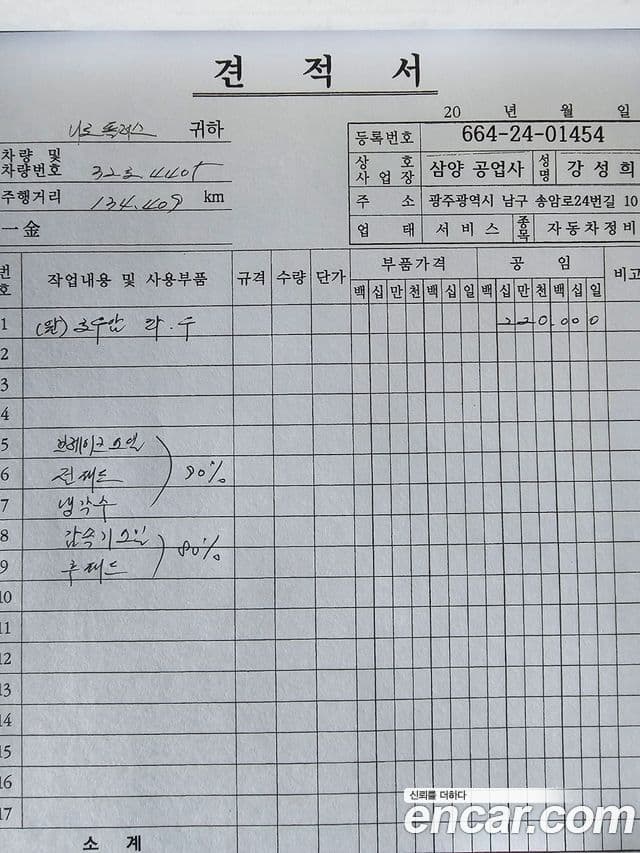 견 적 서
20 년 월 일
니로 플러스 귀하
등록번호 664-24-01454
차량 및
차량번호 32호4405
상 호
사 업 장 삼양 공업사 성명 강성희
주행거리 134.409 km
주 소 광주광역시 남구 송암로24번길 10
一金
업 태 서비스 종목 자동차정비
번호 작업내용 및 사용부품 규격 수량 단가 부품가격 공 임 비고
백 십 만 천 백 십 일 백 십 만 천 백 십 일
1 (완) 조수앞 라.우 220.000
2
3
4
5 브레이크오일
6 전패드 90%
7 냉각수
8 감속기오일 80%
9 후패드
10
11
12
13
14
15
16
17
소 계
신뢰를 더하다
encar.com